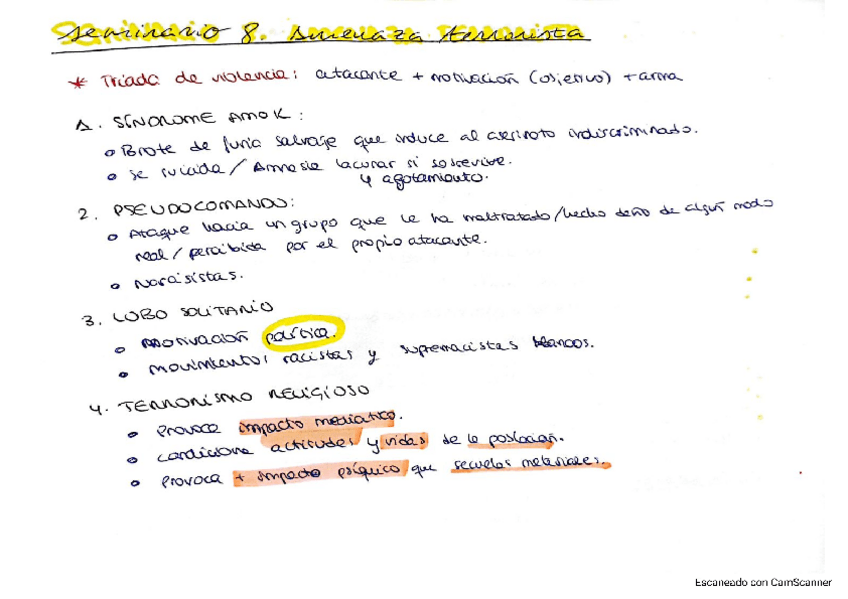 Seminario 8. Amenaza terrorista
* Triada de violencia: atacante + motivación (objetivo) + arma
1. SÍNDROME AMOK:
Brote de furia salvaje que induce al asesinato indiscriminado.
Se suicida / Amnesia lacunar si sobrevive.
y agotamiento.
2. PSEUDOCOMANDO:
Ataque hacia un grupo que le ha maltratado/hecho daño de algún modo
real/percibida por el propio atacante.
Narcisistas.
3. LOBO SOLITARIO
Motivación política.
Movimientos racistas y supremacistas blancos.
4. TERRORISMO RELIGIOSO
Provoca impacto mediático.
Condiciona actitudes y vidas de la población.
Provoca + impacto psíquico que secuelas materiales.
Escaneado con CamScanner